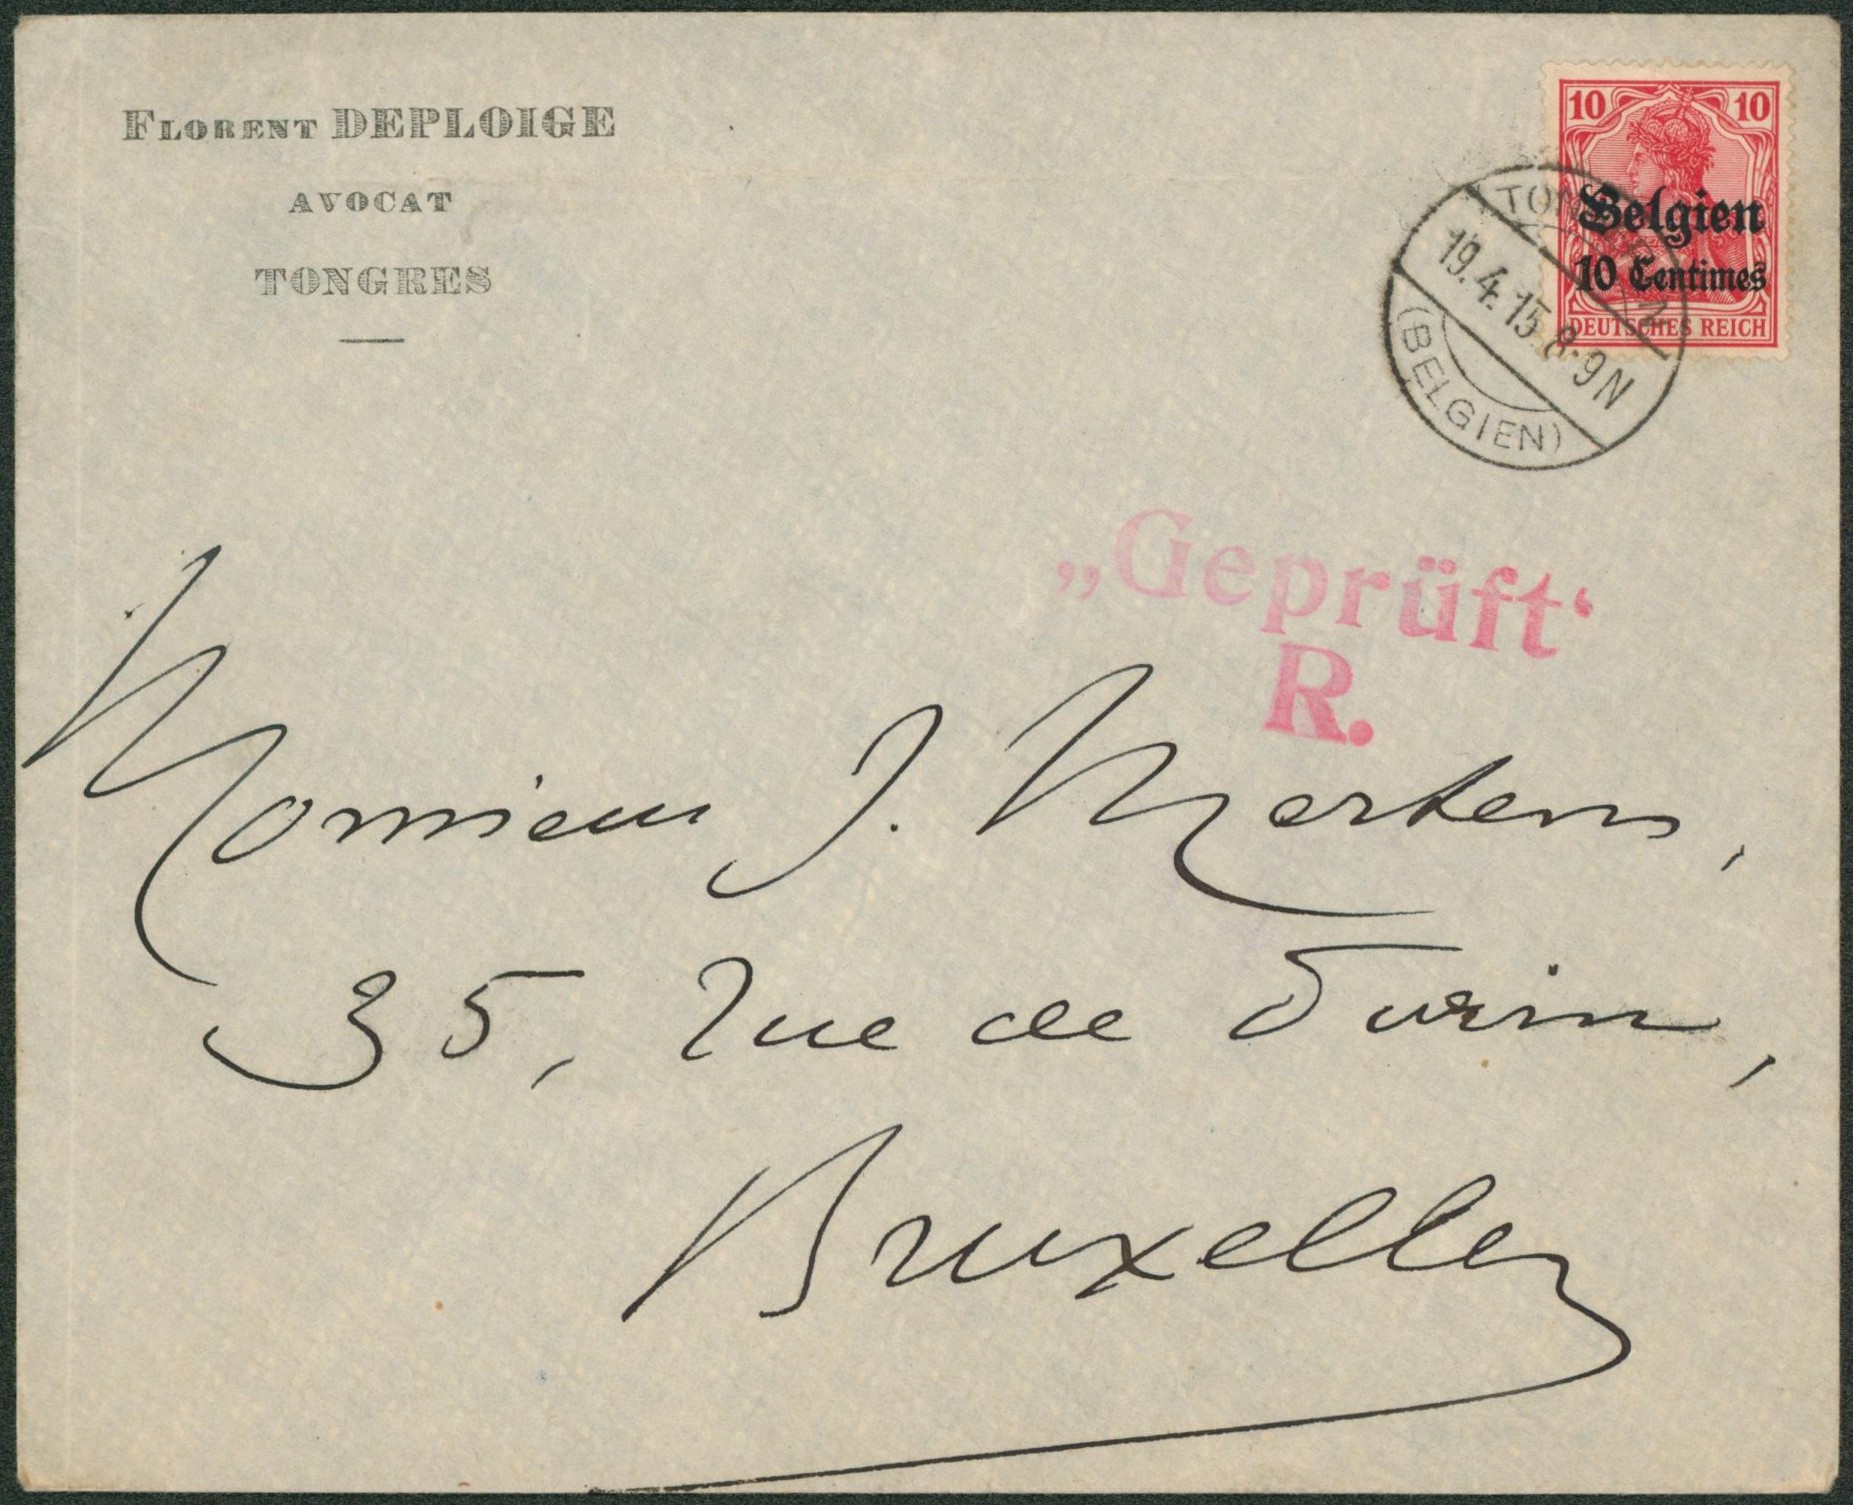 FLORENT DEPLOIGE
AVOCAT
TONGRES
10 10
Belgien
10 Centimes
DEUTSCHES REICH
TONGEREN
19.4.15. 8-9N
(BELGIEN)
„Geprüft“
R.
Monsieur J. Mertens,
35, rue de Turin,
Bruxelles